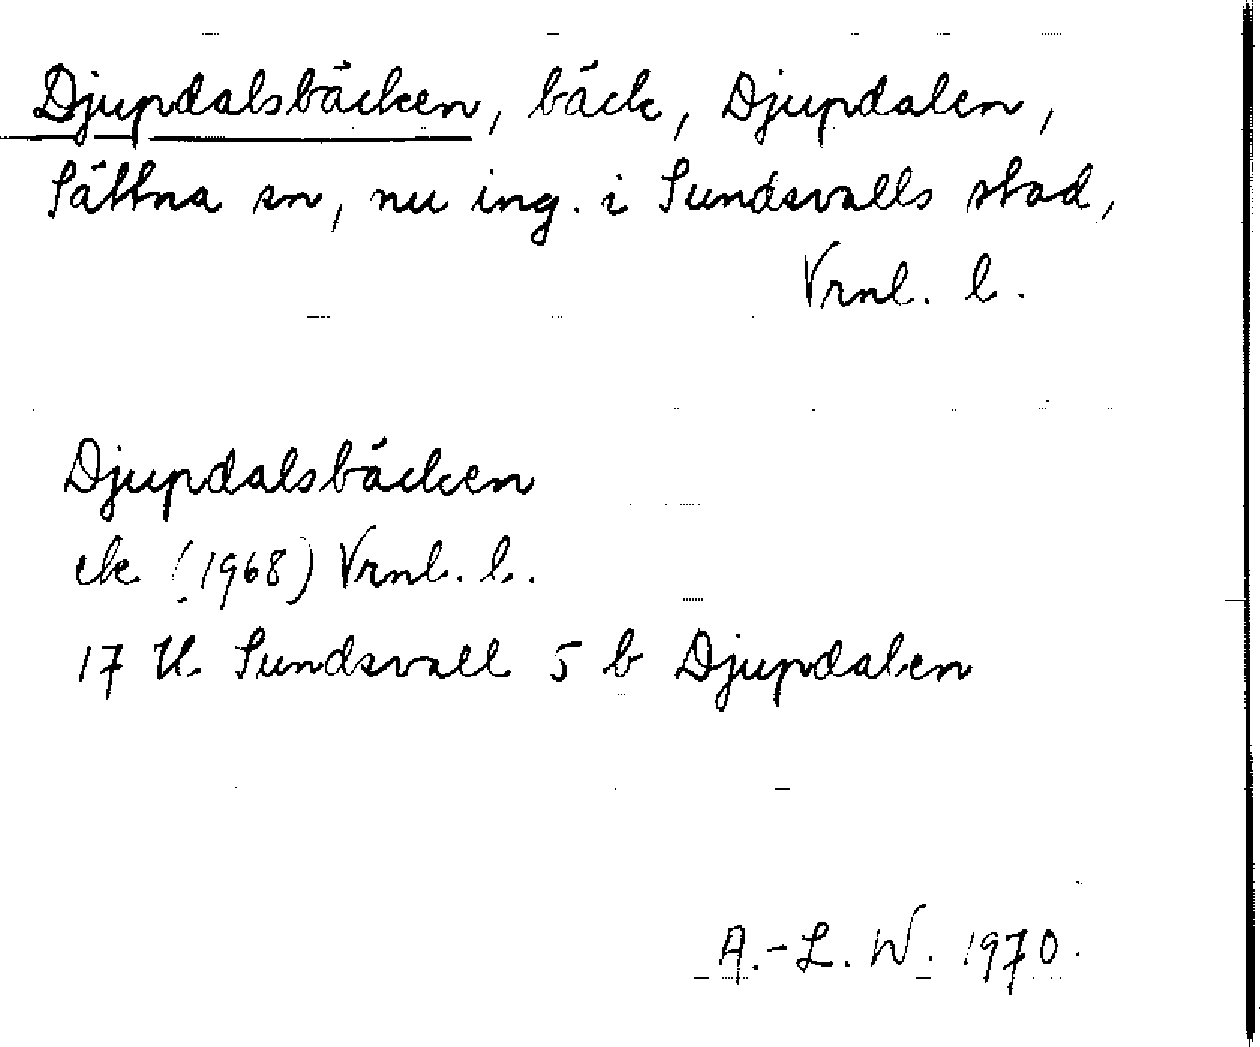 Djupdalsbäcken, bäck, Djupdalen,
Sättna sn, nu ing. i Sundsvalls stad,
Vrnl. l.
Djupdalsbäcken
ek (1968) Vrnl. l.
17 H. Sundsvall 5 b Djupdalen
A.-L. W. 1970.